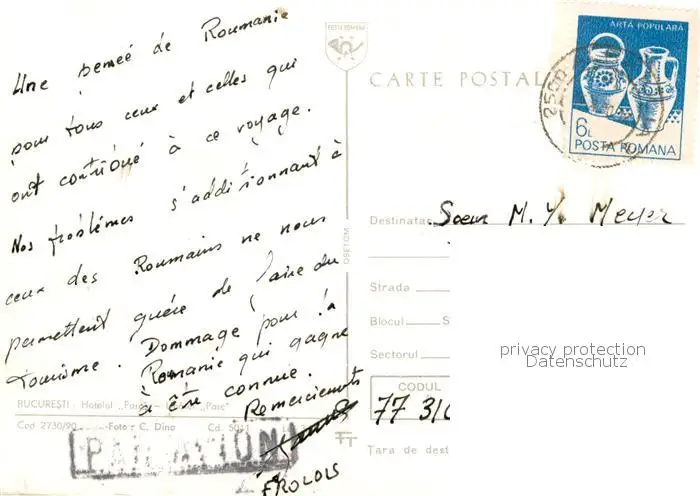 Une pensée de Roumanie
pour tous ceux et celles qui
ont contribué à ce voyage.
Nos problèmes s'additionnant à
ceux des Roumains ne nous
permettent guère de faire du
tourisme. Dommage pour la
Romanie qui gagne
à être connue.
Remerciements
FROLOIS
BUCUREŞTI - Hotelul "Parc"
Cod 2730/90 Foto: C. Dinu Cd. 5011
PAR AVION
POSTA ROMANA
CARTE POSTAL
OSETOM
ARTĂ POPULARĂ
6L
POSTA ROMANA
2500
Destinatar Soeur M. Y. Meyer
Strada
Blocul S
Sectorul
CODUL
77 310
Țara de dest
privacy protection
Datenschutz